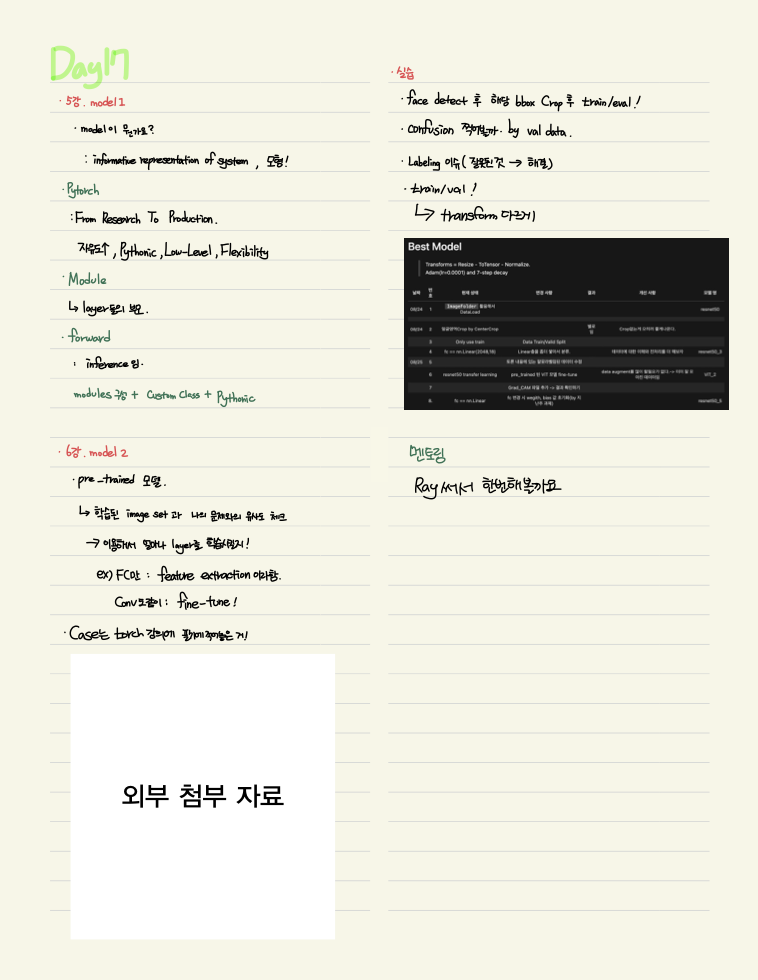 Day17
· 5강. model 1
· model이 뭔가요?
: informative representation of system, 모형!
· Pytorch
: From Research To Production.
자유도↑, Pythonic, Low-Level, Flexibility
· Module
↳ layer들의 보고.
· forward
: inference 임.
modules 구성 + Custom Class + Pythonic
· 6강. model 2
· pre-trained 모델.
↳ 학습된 image set 과 나의 문제와의 유사도 체크
→ 이용해서 얼마나 layer를 학습시킬지!
ex) FC만 : feature extraction 이라함.
Conv도같이 : fine-tune!
· Case는 torch 강의에 필기에 적어놓은 거!
외부 첨부 자료
· 실습
· face detect 후 해당 bbox Crop 후 train/eval!
· confusion 찍어볼까. by val data.
· Labeling 이슈 (잘못된것 → 해결)
· train/val!
↳ transform 다르게
Best Model
Transforms = Resize - ToTensor - Normalize.
Adam(lr=0.0001) and 7-step decay
날짜 번호 현재 상태 변경 사항 결과 개선 사항 모델 명
09/24 1 ImageFolder 활용해서 DataLoad resnet50
09/24 2 얼굴영역Crop by CenterCrop
3 Only use train Data Train/Valid Split
4 fc == nn.Linear(2048,18)
09/25 5
6 resnet50 transfer learning pre_trained 된 ViT 모델 fine-tune ViT_2
7 Grad_CAM 파일 추가 -> 결과 확인하기
8 fc == nn.Linear
멘토링
Ray 써서 한번해볼까요